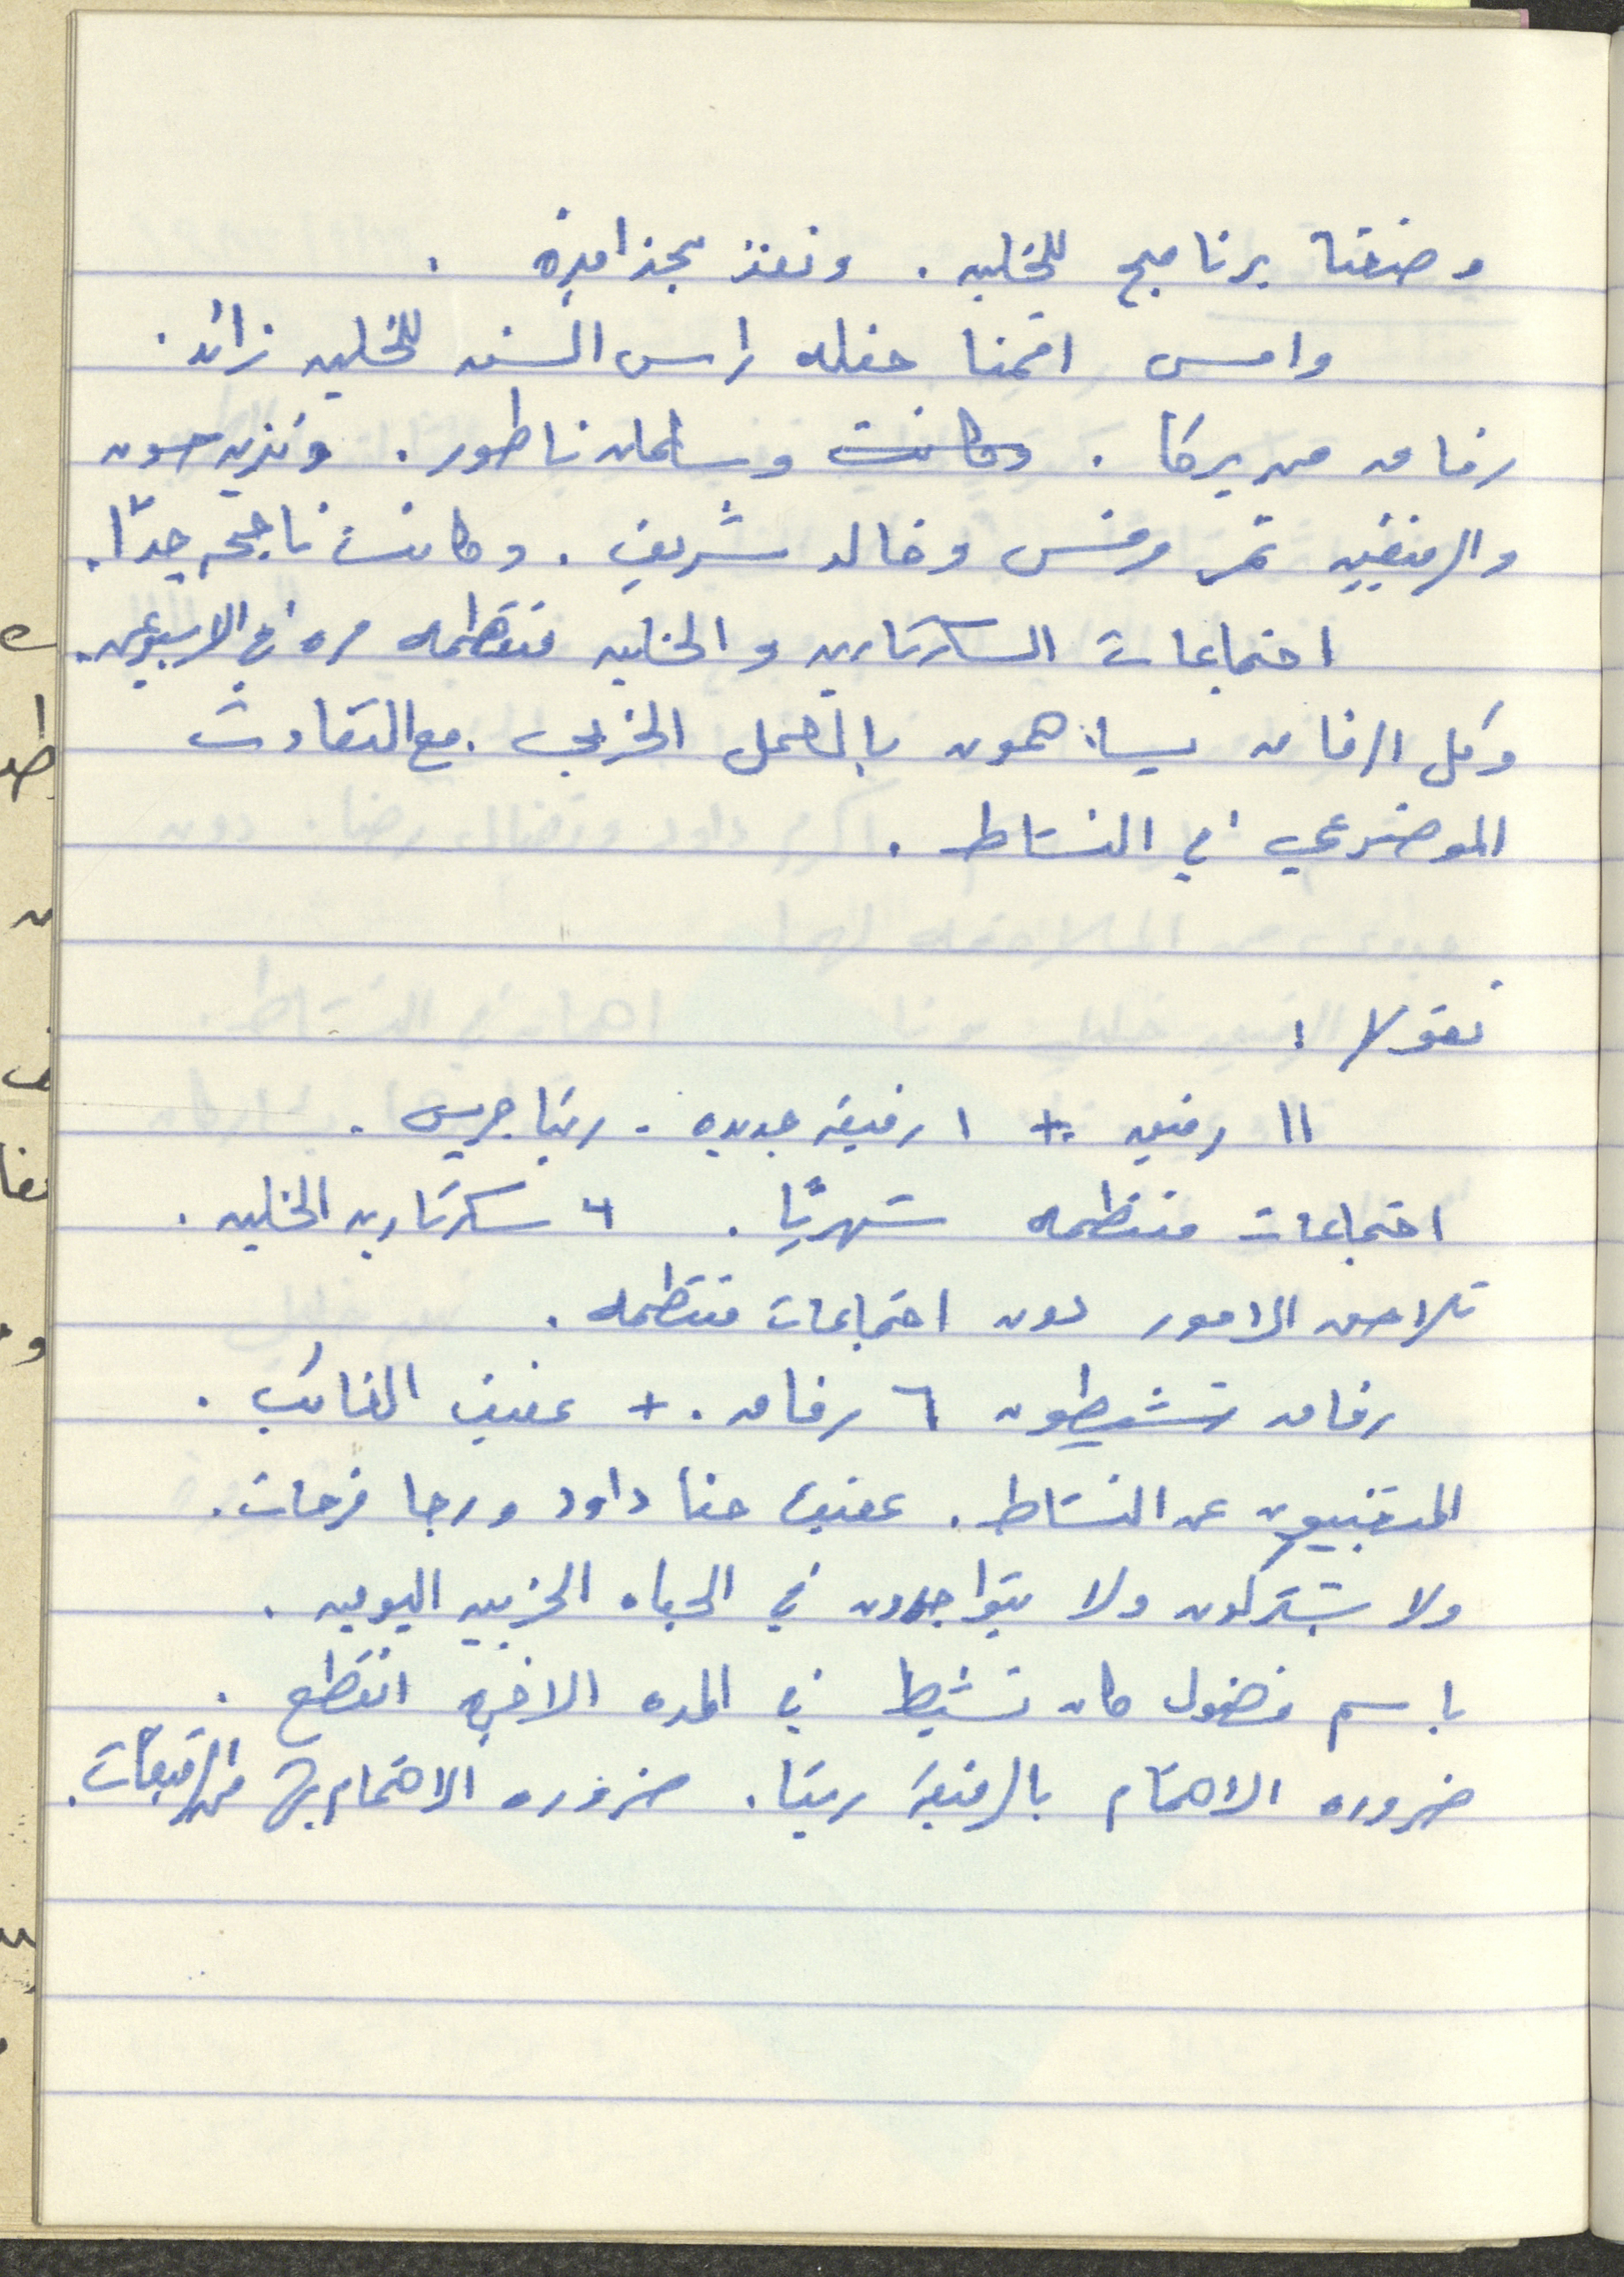 وضعنا برنامج للخليه . ونفذ بجذافيره .
وامس اقمنا حفله راس السنه للخليه زائد .
رفاق من يركا . وكانت وسلمان ناطور . ونزيه حسون
والرفيقين نمر مرقس وخالد شريف . وكانت ناجحه جدًا .
اجتماعات السكرتاريه والخليه منتظمه مره في الاسبوعين .
وكل الرفاق يساهمون بالعمل الحزبي . مع التفاوت
الموضوعي في النشاط .
نقولا :
11 رفيق + 1 رفيقه جديده . ريتا جريس .
اجتماعات منتظمه شهريًا . سكرتاريه الخليه .
تلاحق الامور دون اجتماعات منتظمه .
رفاق نشيطون ٦ رفاق . + عفيف الغائب .
المتغيبون عن النشاط . عفيف حنا داود ورجا فرحات .
ولا يشتركون ولا يتواجدون في الحياه الحزبيه اليوميه .
باسم فضول كان نشيط في المده الاخيره انقطع .
ضروره الاهتمام بالرفيقه ريتا . ضروره الاهتمام بها من الرفيقات .